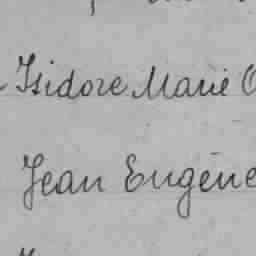 Isidore Marie
Jean Eugène